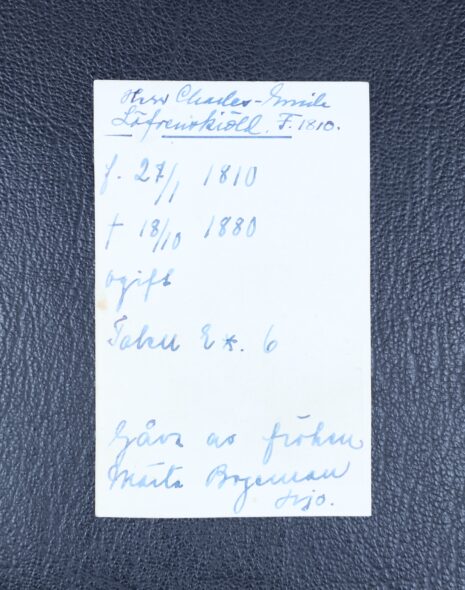 Herr Charles-Emile
Löfvenskiöld. F. 1810.
f. 27/1 1810
† 18/10 1880
ogift
Tabell 6
Gåva av fröken
Märta Bogeman
Hjo.